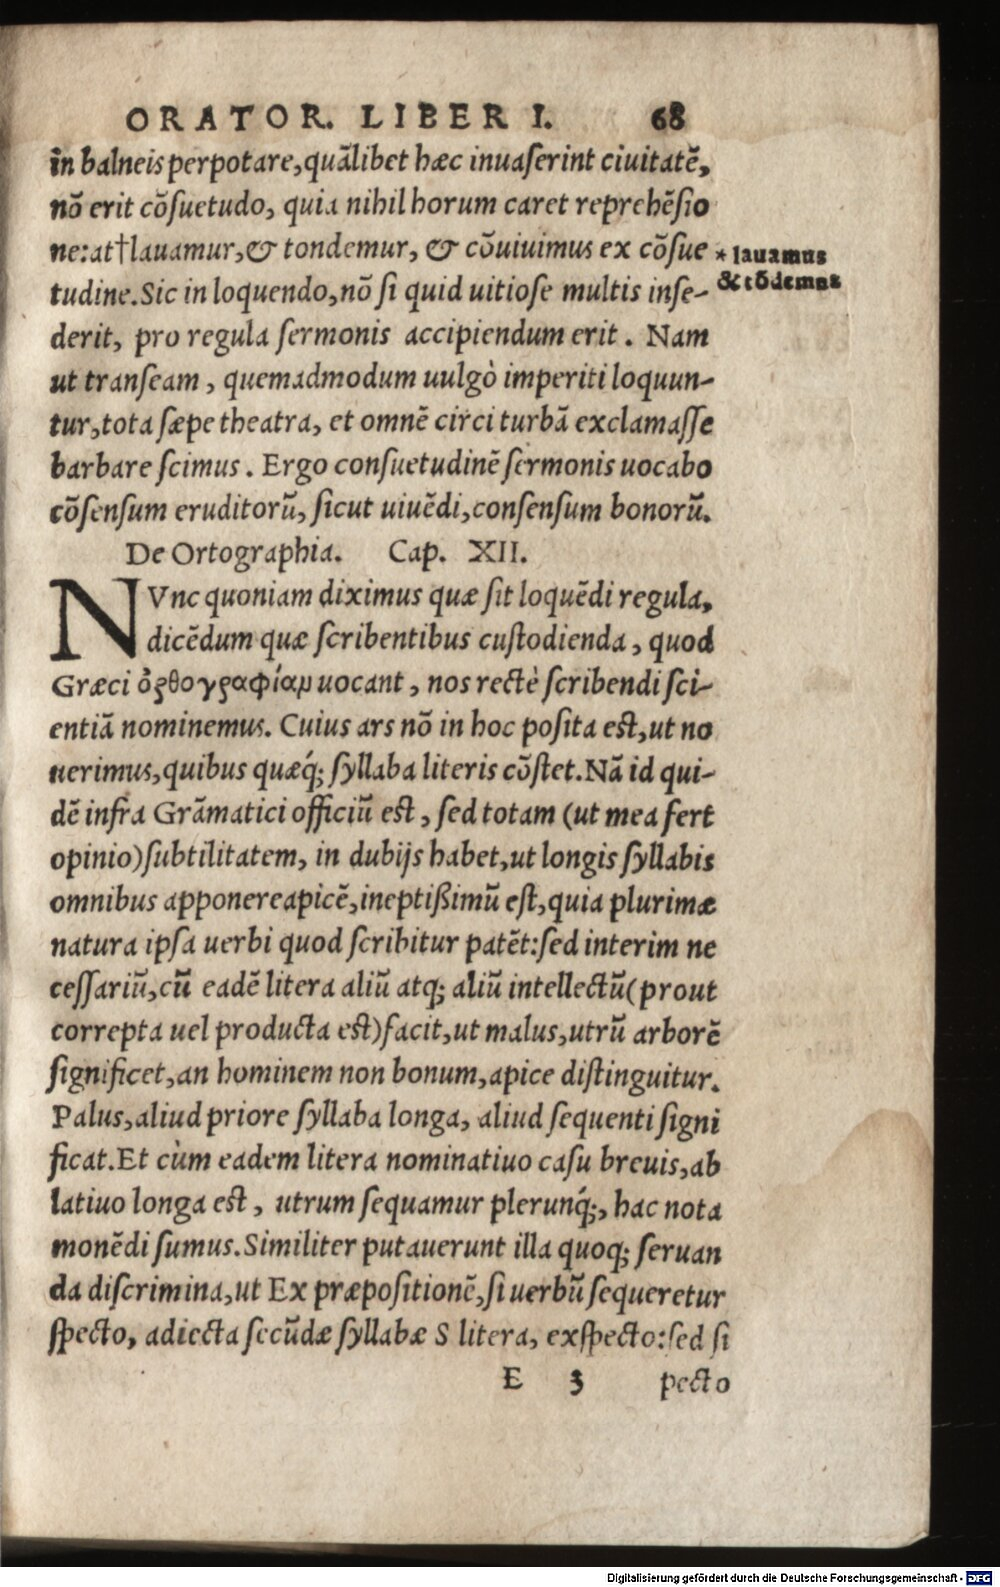 ORATOR. LIBER I. 68
in balneis perpotare, quālibet hæc inuaſerint ciuitatē,
nō erit cōſuetudo, quia nihil horum caret reprehēſio
ne: at†lauamur, & tondemur, & cōuiuimus ex cōſue
tudine. Sic in loquendo, nō ſi quid uitioſe multis inſe-
derit, pro regula ſermonis accipiendum erit. Nam
ut tranſeam, quemadmodum uulgò imperiti loquun-
tur, tota ſæpe theatra, et omnē circi turbā exclamaſſe
barbare ſcimus. Ergo conſuetudinē ſermonis uocabo
cōſenſum eruditorū, ſicut uiuēdi, conſenſum bonorū.
* lauamus
& tōdemus
De Ortographia. Cap. XII.
NVnc quoniam diximus quæ ſit loquēdi regula,
dicēdum quæ ſcribentibus cuſtodienda, quod
Græci ὀρθογραφίαμ uocant, nos rectè ſcribendi ſci-
entiā nominemus. Cuius ars nō in hoc poſita eſt, ut no
uerimus, quibus quæq́; ſyllaba literis cōſtet. Nā id qui-
dē infra Grāmatici officiū eſt, ſed totam (ut mea fert
opinio) ſubtilitatem, in dubijs habet, ut longis ſyllabis
omnibus apponere apicē, ineptißimū eſt, quia plurimæ
natura ipſa uerbi quod ſcribitur patēt: ſed interim ne
ceſſariū, cū eadē litera aliū atq; aliū intellectū (prout
correpta uel producta eſt) facit, ut malus, utrū arborē
ſignificet, an hominem non bonum, apice diſtinguitur.
Palus, aliud priore ſyllaba longa, aliud ſequenti ſigni
ficat. Et cùm eadem litera nominatiuo caſu breuis, ab
latiuo longa eſt, utrum ſequamur plerunq́;, hac nota
monēdi ſumus. Similiter putauerunt illa quoq; ſeruan
da diſcrimina, ut Ex præpoſitionē, ſi uerbū ſequeretur
ſpecto, adiecta ſecūdæ ſyllabæ S litera, exſpecto: ſed ſi
E 3 pecto
Digitalisierung gefördert durch die Deutsche Forschungsgemeinschaft - DFG